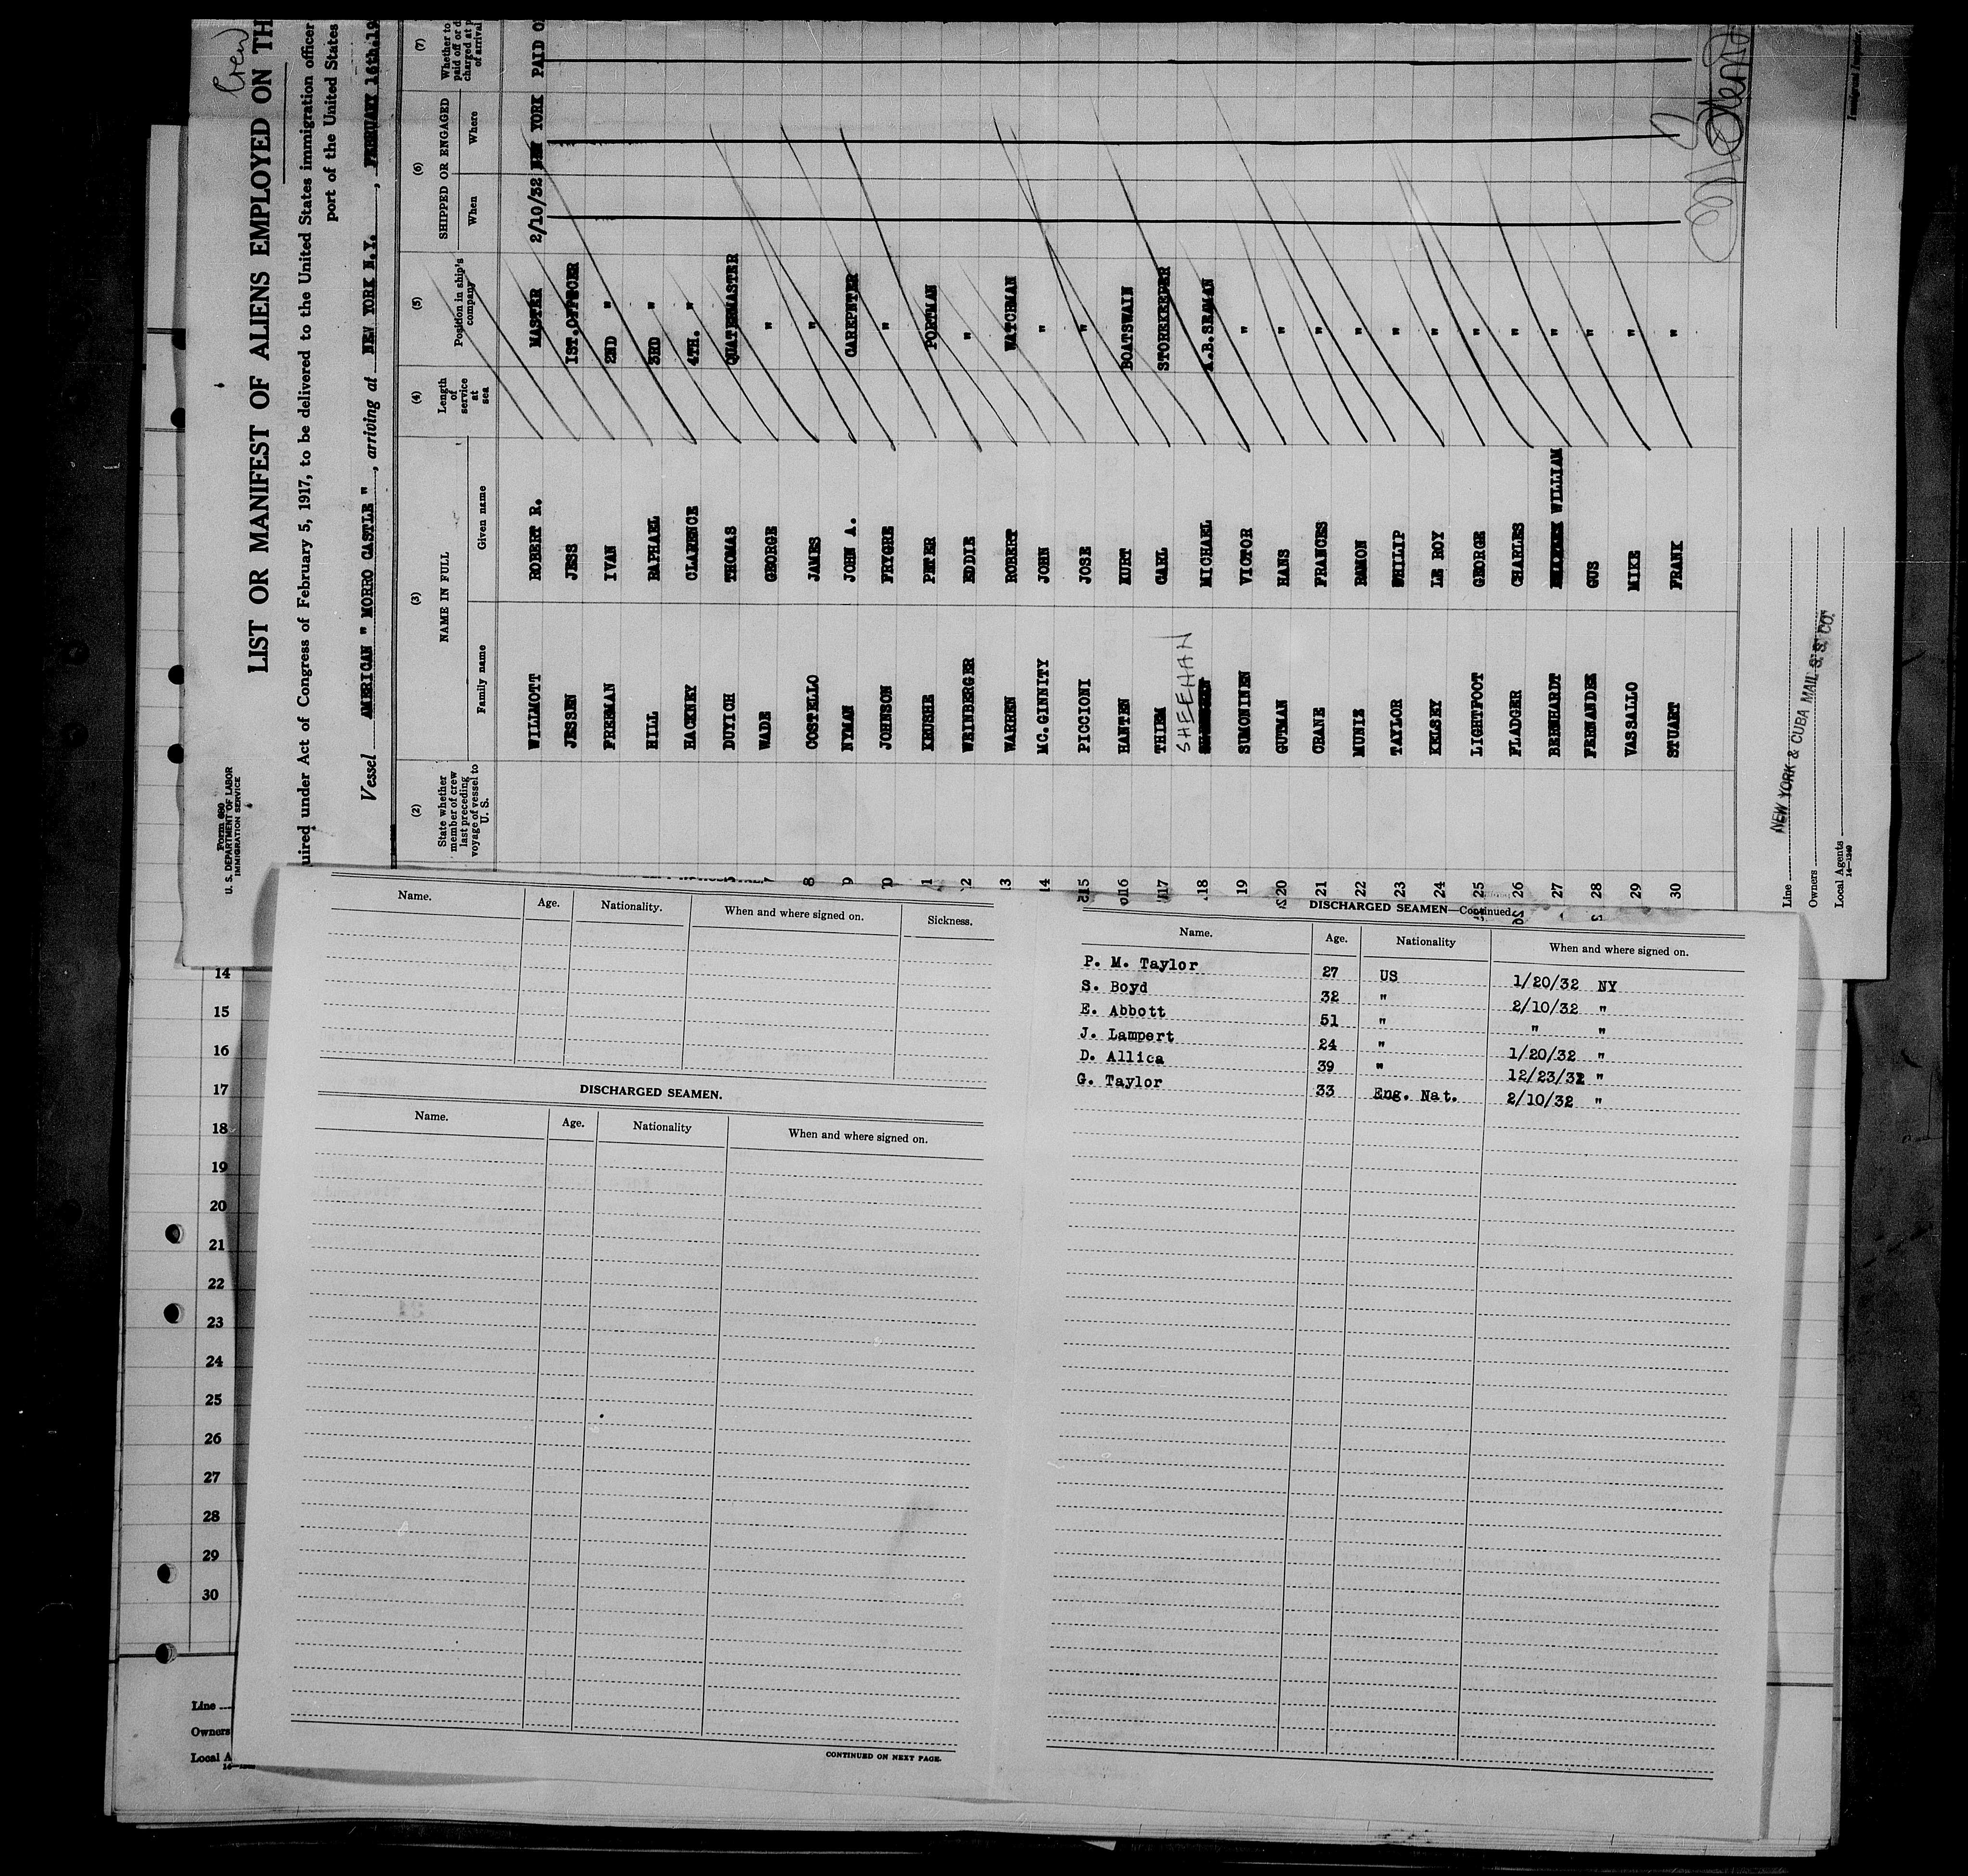 Crew
Form 680
U. S. DEPARTMENT OF LABOR
IMMIGRATION SERVICE
LIST OR MANIFEST OF ALIENS EMPLOYED ON TH
uired under Act of Congress of February 5, 1917, to be delivered to the United States immigration officer
port of the United States
Vessel AMERICAN " MORRO CASTLE ", arriving at NEW YORK N.Y. , FEBRUARY 16th.19
(2) (3) (4) (5) (6) (7)
State whether member of crew last preceding voyage of vessel to U. S.
NAME IN FULL
Family name Given name
Length of service at sea
Position in ship's company
SHIPPED OR ENGAGED
When Where
Whether to paid off or d charged at p of arrival
WILLMOTT ROBERT R. MASTER 2/10/32 NEW YORK PAID O
JESSEN JESS 1ST.OFFICER
FREEMAN IVAN 2ND "
HILL RAPHAEL 3RD "
HACKNEY CLARENCE 4TH. "
DUYICH THOMAS QUATERMASTER
WADE GEORGE "
8 COSTELLO JAMES "
9 NYMAN JOHN A. CAREPNTER
0 JOHNSON FRYGRE "
1 KRUSHE PETER PORTMAN
2 WEINBERGER EDDIE "
3 WARREN ROBERT WATCHMAN
14 MC.GINNITY JOHN "
15 PICCIONI JOSE "
16 HANTEN KURT BOATSWAIN
17 THIEM CARL STOREKEEPER
18 SHEEHAN MICHAEL A.B.SEAMAN
19 SUMONINEN VICTOR "
20 GUTMAN HANS "
21 CRANE FRANCES "
22 MUNIZ RAMON "
23 TAYLOR PHILIP "
24 KELSEY LE ROY "
25 LIGHTFOOT GEORGE "
26 FLADGER CHARLES "
27 BERNHARDT WILLIAM "
28 FERNANDEZ GUS "
29 VASSALLO MIKE "
30 STUART FRANK "
Line NEW YORK & CUBA MAIL S. S. CO.
Owners
Local Agents
14—1240
Immigrant Inspector
Name. Age. Nationality. When and where signed on. Sickness.
DISCHARGED SEAMEN.
Name. Age. Nationality When and where signed on.
CONTINUED ON NEXT PAGE.
DISCHARGED SEAMEN—Continued.
Name. Age. Nationality When and where signed on.
P. M. Taylor 27 US 1/20/32 NY
S. Boyd 32 " 2/10/32 "
E. Abbott 51 " " "
J. Lampert 24 " 1/20/32 "
D. Allica 39 " 12/23/32 "
G. Taylor 33 Eng. Nat. 2/10/32 "
14
15
16
17
18
19
20
21
22
23
24
25
26
27
28
29
30
Line
Owners
Local A